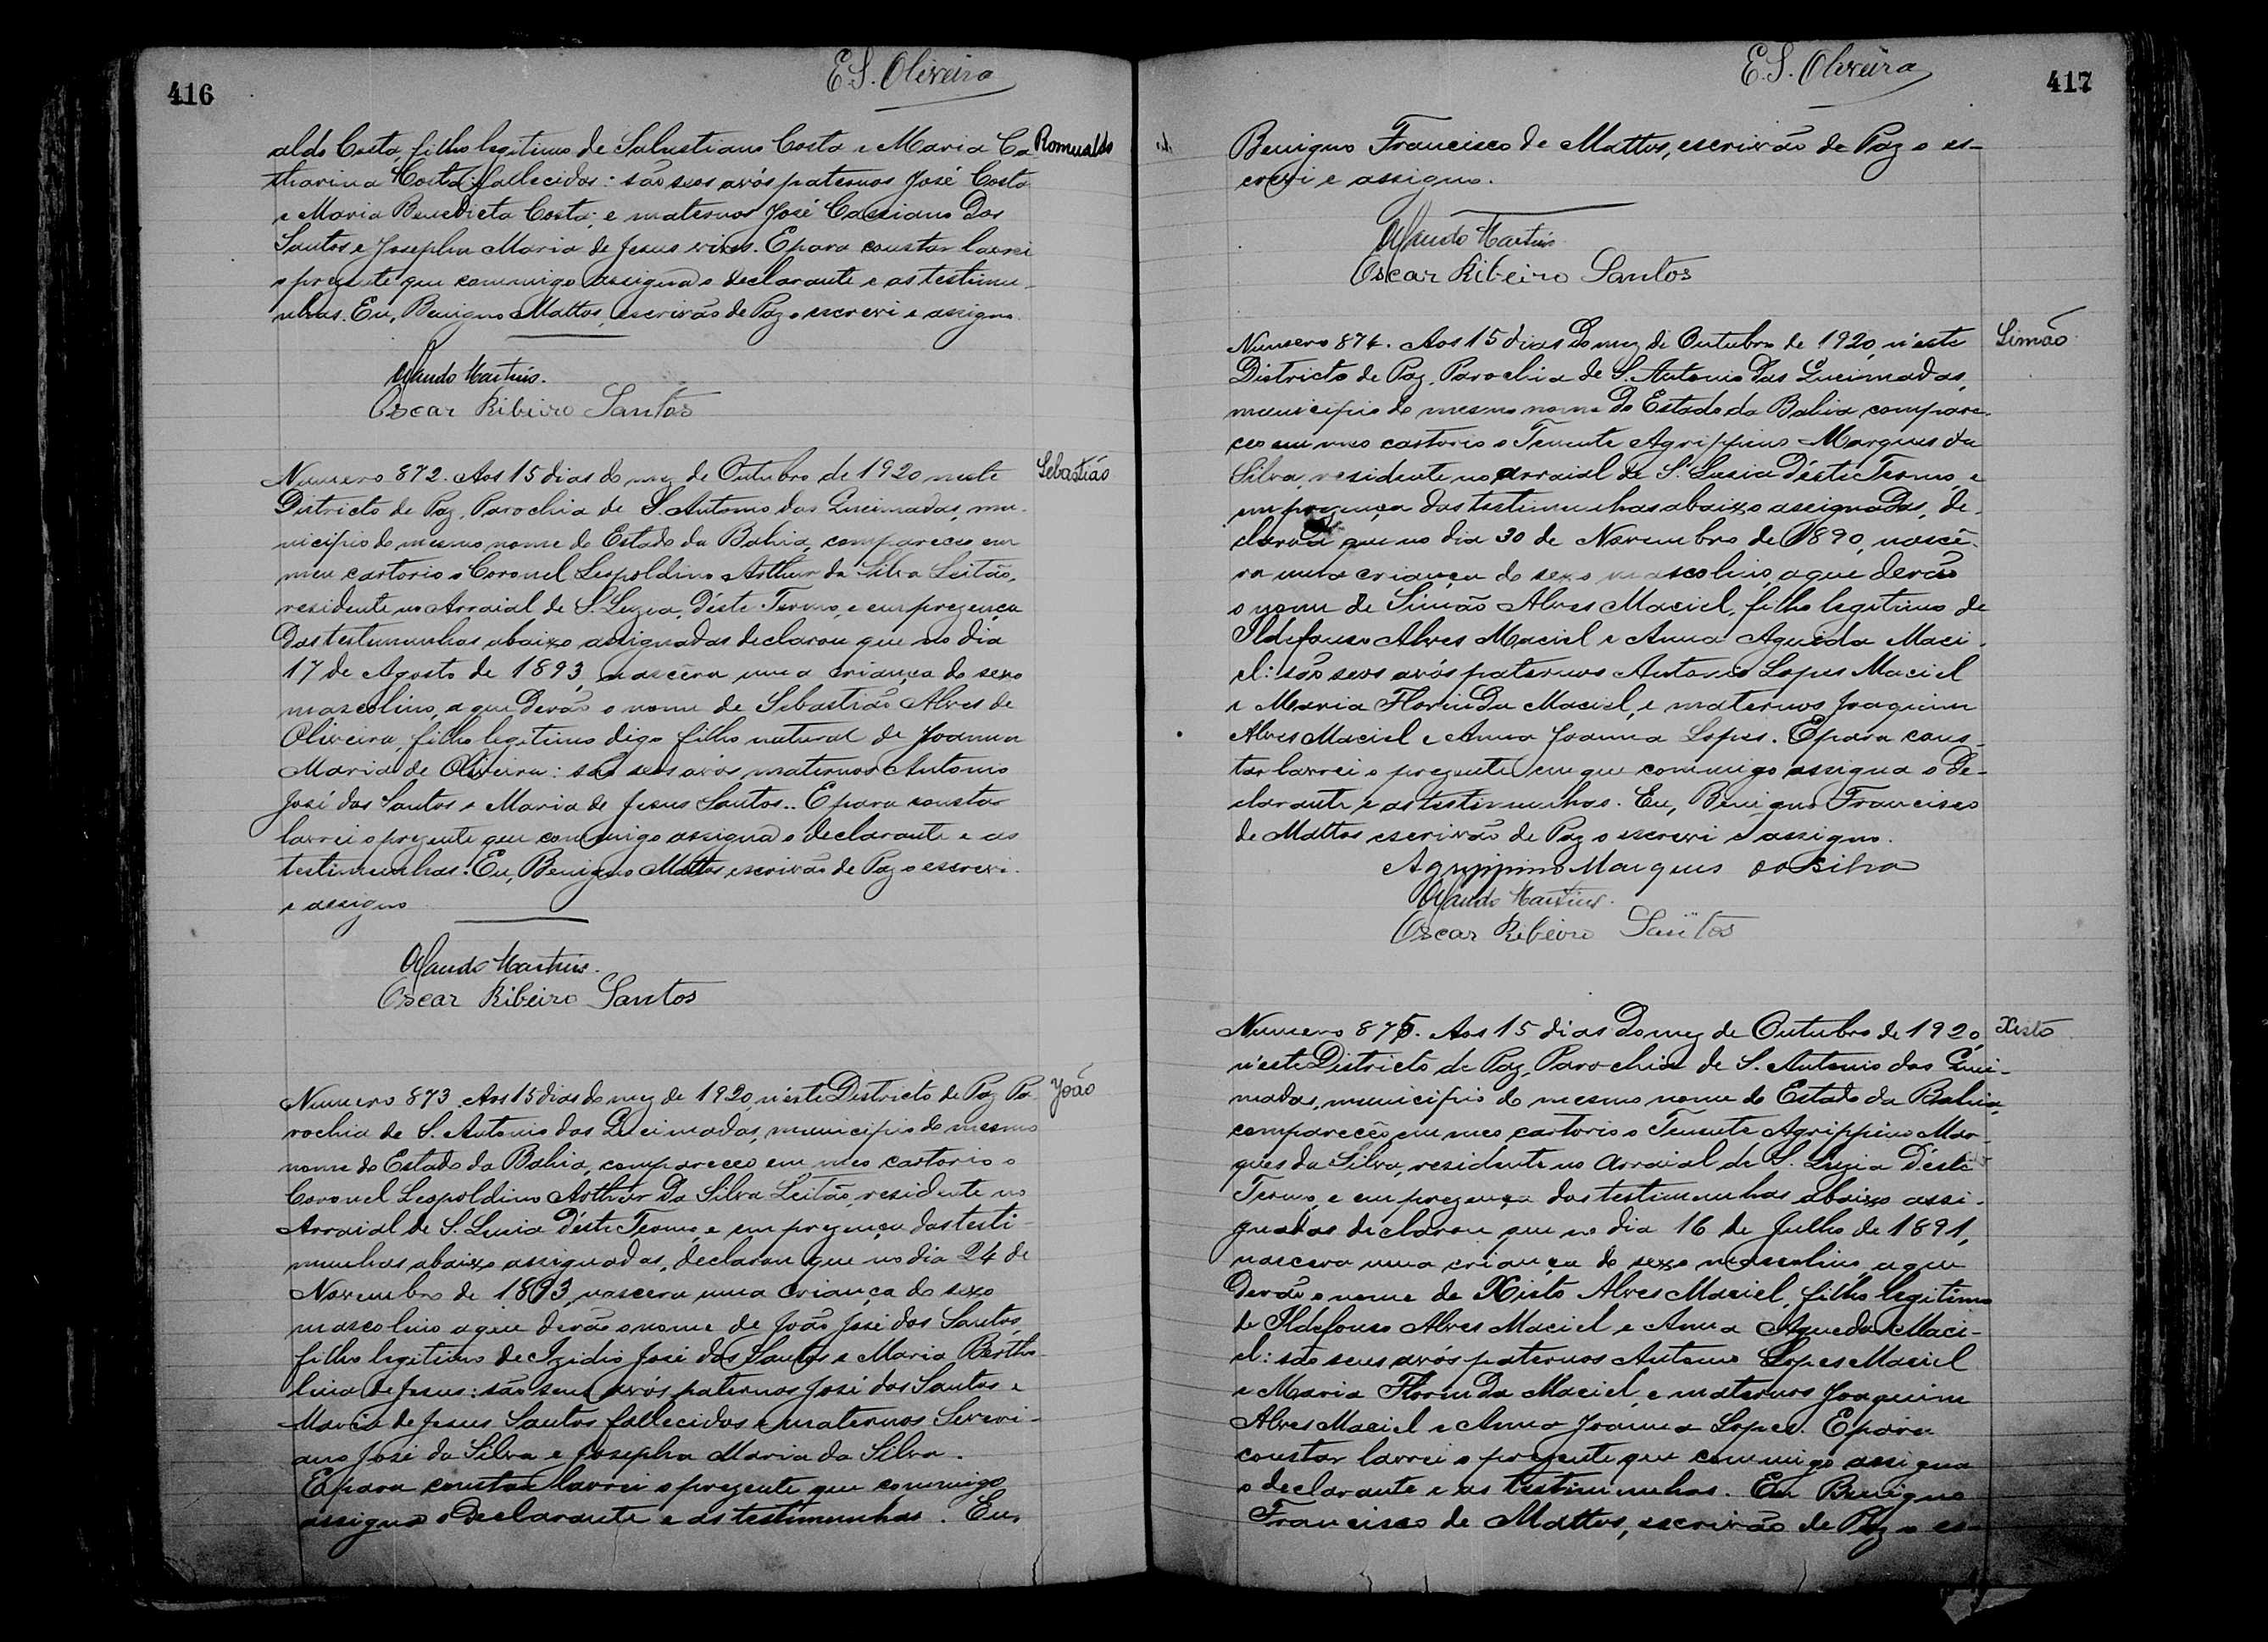 416
E.S. Oliveira
aldo Costa, filho legitimo de Salustiano Costa e Maria Ca
Romualdo
tharina Costa, fallecidos: são seos avós paternos José Costa
e Maria Benedicta Costa; e maternos José Cassiano dos
Santos e Josepha Maria de Jesus vivos. E para constar lavrei
o prezente que commigo assigna o declarante e as testimu-
nhas. Eu, Benigno Mattos, escrivão de Paz o escrevi e assigno.
Martins.
Oscar Ribeiro Santos
Sebastião
Numero 872. Aos 15 dias do mez de Outubro de 1920 neste
Districto de Paz, Parochia de S. Antonio das Queimadas, mu-
nicipio do mesmo nome do Estado da Bahia, compareceo em
meu cartorio o Coronel Leopoldino Arthur da Silva Leitão,
residente no Arraial de S. Luzia, d'éste Termo, e em prezença
das testimunhas abaixo assignadas declarou que no dia
17 de Agosto de 1893, nascêra uma criança do sexo
masculino, a que derão o nome de Sebastião Alves de
Oliveira, filho legitimo digo filho natural de Joanna
Maria de Oliveira: são seos avós maternos Antonio
José dos Santos e Maria de Jesus Santos.. E para constar
lavrei o prezente que commigo assigna o declarante e as
testimunhas. Eu, Benigno Mattos, escrivão de Paz o escrevi.
e assigno
Martins.
Oscar Ribeiro Santos
João
Numero 873. Aos 15 dias do mez de 1920, n'éste Districto de Paz Pa-
rochia de S. Antonio das Queimadas, municipio do mesmo
nome do Estado da Bahia, compareceo em meo cartorio o
Coronel Leopoldino Arthur da Silva Leitão, residente no
Arraial de S. Luzia d'éste Termo, e em prezença das testi-
munhas abaixo assignadas, declarou que no dia 24 de
Novembro de 1893, nascera uma criança do sexo
mascolino a que derão o nome de João José dos Santos,
filho legitimo de Izidio José dos Santos e Maria Bertho
lina de Jesus: são seus avós paternos José dos Santos e
Maria de Jesus Santos fallecidos e maternos Severi-
ano José da Silva e Josepha Maria da Silva.
E para constar lavrei o prezente que commigo
assigna o declarante e as testimunhas. Eu,
E.S. Oliveira
417
Benigno Francisco de Mattos, escrivão de Paz o es-
crevi e assigno.
Martins
Oscar Ribeiro Santos
Simão
Numero 874. Aos 15 dias do mez de Outubro de 1920, n'éste
Districto de Paz, Parochia de S. Antonio das Queimadas,
municipio do mesmo nome do Estado da Bahia, compare-
ceo em meo cartorio o Tenente Agrippino Marques da
Silva, residente no arraial de S. Luzia d'éste Termo, e
em prezença das testimunhas abaixo assignadas, de-
clarou que no dia 30 de Novembro de 1890, nascê-
ra uma criança do sexo mascolino, a que derão
o nome de Simão Alves Maciel, filho legitimo de
Ildefonso Alves Maciel e Anna Agueda Maci-
el: são seos avós paternos Antonio Lopes Maciel
e Maria Florinda Maciel, e maternos Joaquim
Alves Maciel e Anna Joanna Lopes. E para cons-
tar lavrei o prezente em que commigo assigna o de-
clarante e as testimunhas. Eu, Benigno Francisco
de Mattos escrivão de Paz o escrevi e assigno.
Agrippino Marques da Silva
Martins.
Oscar Ribeiro Santos
Xisto
Numero 875. Aos 15 dias do mez de Outubro de 1920,
n'éste Districto de Paz, Parochia de S. Antonio das Quei-
madas, municipio do mesmo nome do Estado da Bahia,
compareceo em meo cartorio o Tenente Agrippino Mar-
ques da Silva, residente no Arraial de S. Luzia d'éste
Termo, e em prezença das testimunhas abaixo assi-
gnadas declarou que no dia 16 de Julho de 1891,
nascera uma criança do sexo masculino, a que
derão o nome de Xisto Alves Maciel, filho legitimo
de Ildefonso Alves Maciel e Anna Agueda Maci-
el: são seus avós paternos Antonio Lopes Maciel
e Maria Florinda Maciel, e maternos Joaquim
Alves Maciel e Anna Joanna Lopes. E para
constar lavrei o prezente que commigo assigna
o declarante e as testimunhas. Eu Benigno
Francisco de Mattos, escrivão de Paz o es-